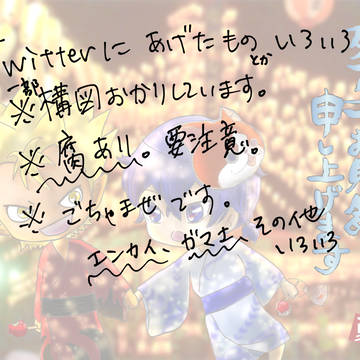 Twitterに あげたもの とか いろいろ
※一部構図おかりしています。
※ 腐あり。要注意。
※ ごちゃまぜです。
エンカイ、ガマ士、その他
いろいろ
申し上げます